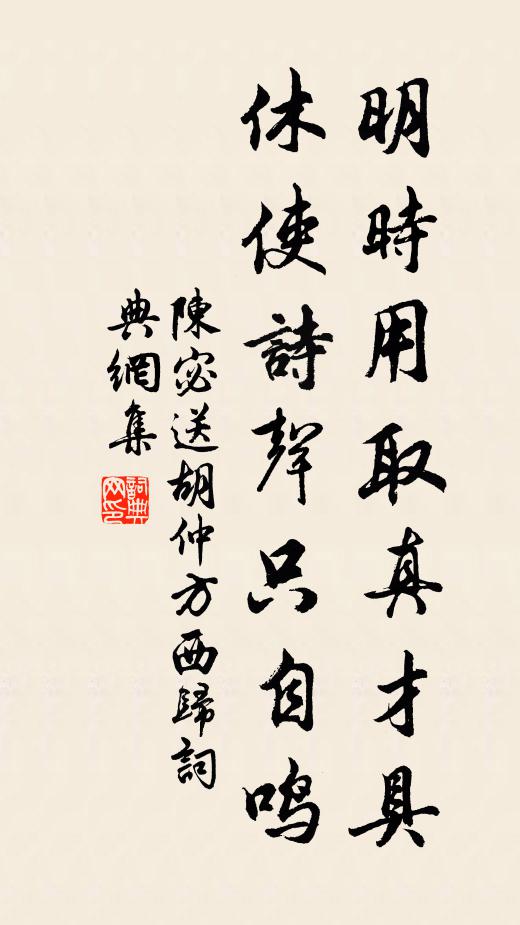 明時用取真才具
休使詩聲只自鳴
陳宓送胡仲方西歸詞
典網集
詞典网印